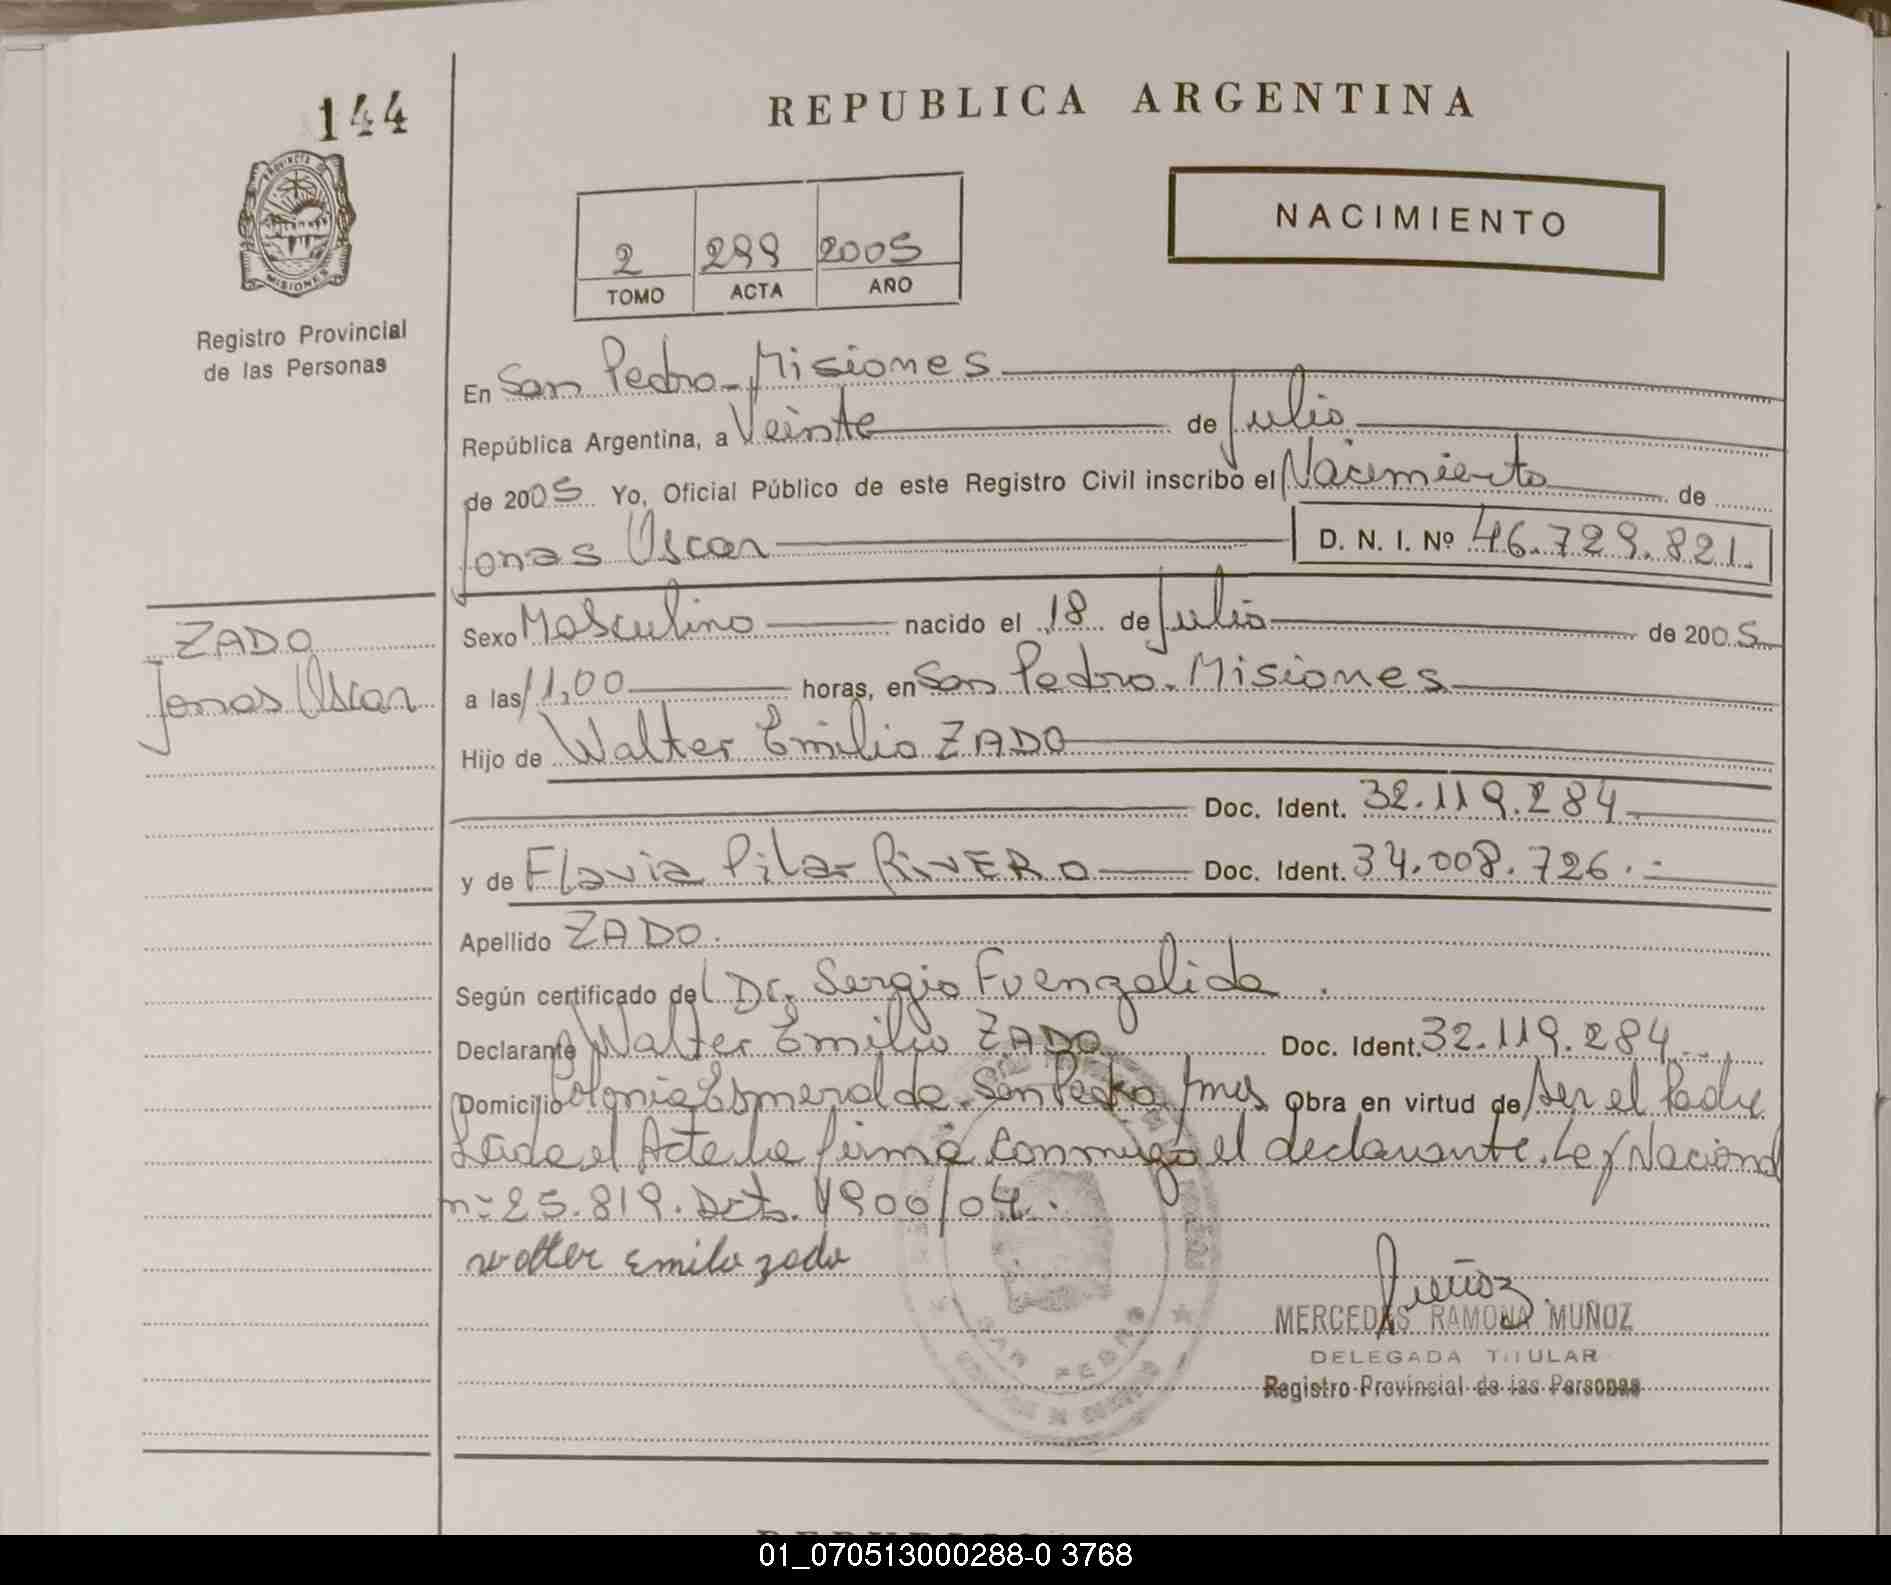 144
REPUBLICA ARGENTINA
PROVINCIA DE
MISIONES
NACIMIENTO
2 299 2005
TOMO ACTA AÑO
Registro Provincial
de las Personas
En San Pedro - Misiones
República Argentina, a Veinte de Julio
de 2005 Yo, Oficial Público de este Registro Civil inscribo el Nacimiento de
Jonas Oscar D. N. I. Nº 46.729.821.
ZADO
Jonas Oscar
Sexo Masculino nacido el 18 de Julio de 2005
a las 11,00 horas, en San Pedro - Misiones
Hijo de Walter Emilio ZADO
Doc. Ident. 32.119.284
y de Flavia Pilar RIVERO Doc. Ident. 34.008.726.-
Apellido ZADO.
Según certificado del Dr. Sergio Fuenzalida.
Declarante Walter Emilio ZADO Doc. Ident. 32.119.284
Domicilio Colonia Esmeralda - San Pedro, Mnes Obra en virtud de Ser el Padre
Leida el Acta la firma conmigo el declarante. Ley Nacional
nº 25.819. Dcto. 1900/04.
walter Emilio zado
Muñoz
MERCEDES RAMONA MUÑOZ
DELEGADA TITULAR
Registro Provincial de las Personas
SAN PEDRO
01_070513000288-0 3768